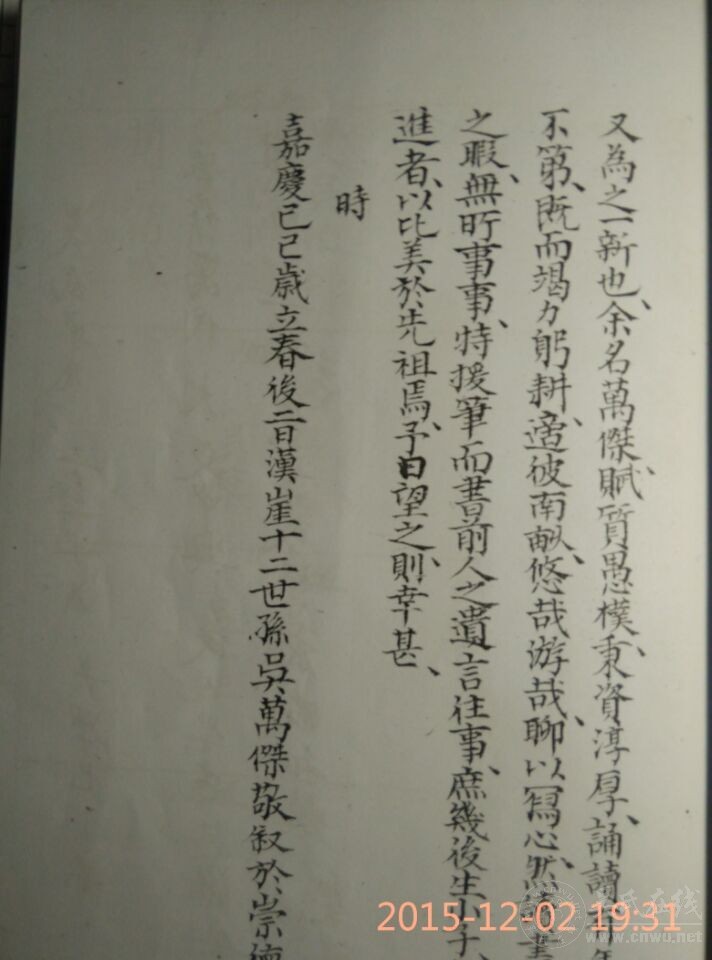 又為之一新也、余名萬傑、賦質愚樸、秉資淳厚、誦讀
不第、既而竭力躬耕、適彼南畝、悠哉游哉、聊以寫心、然
之暇、無所事事、特援筆而書前人之遺言往事、庶幾後生小子、
進者、以比美於先祖焉、予日望之、則幸甚、
時
嘉慶己巳歲立春後二日漢崖十二世孫吳萬傑敬叙於崇德
2015-12-02 19:31
www.cnwu.net